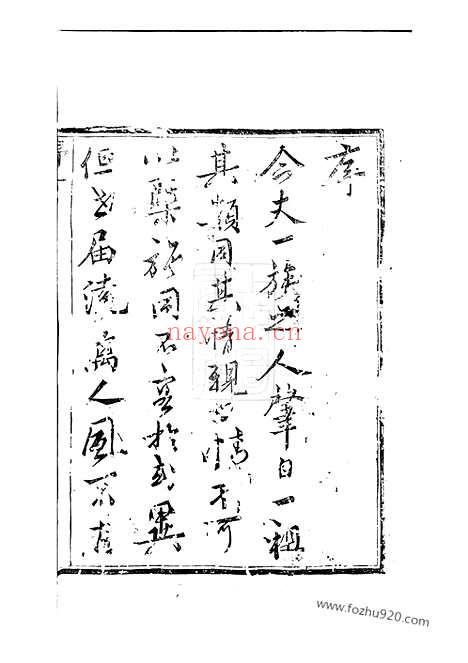 序
今夫一族之人肇自一祖
其類同其情親其情不可
以繫族同不容於或異
但世届澆漓人風不古
nayona.cn
www.fozhu920.com